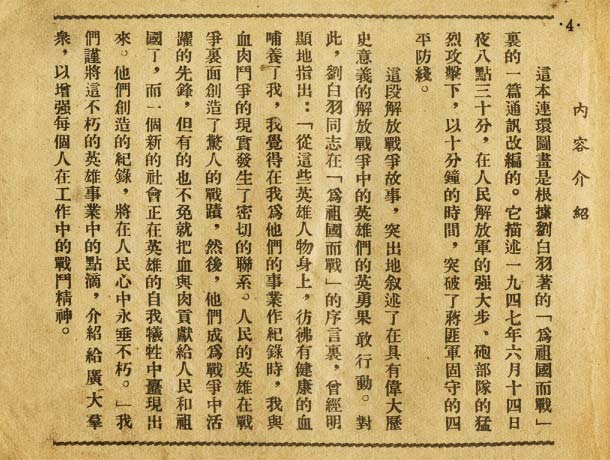 ·4·
內容介紹
這本連環圖畫是根據劉白羽著的「爲祖國而戰」
裏的一篇通訊改編的。它描述一九四七年六月十四日
夜八點三十分，在人民解放軍的强大步、砲部隊的猛
烈攻擊下，以十分鐘的時間，突破了蔣匪軍固守的四
平防綫。
這段解放戰爭故事，突出地叙述了在具有偉大歷
史意義的解放戰爭中的英雄們的英勇果敢行動。對
此，劉白羽同志在「爲祖國而戰」的序言裏，曾經明
顯地指出：「從這些英雄人物身上，彷彿有健康的血
哺養了我，我覺得在我爲他們的事業作紀錄時，我與
血肉鬥爭的現實發生了密切的聯系。人民的英雄在戰
爭裏面創造了驚人的戰蹟，然後，他們成爲戰爭中活
躍的先鋒，但有的也不免就把血與肉貢獻給人民和祖
國了，而一個新的社會正在英雄的自我犧牲中臺現出
來。他們創造的紀錄，將在人民心中永垂不朽。」我
們謹將這不朽的英雄事業中的點滴，介紹給廣大羣
衆，以增强每個人在工作中的戰鬥精神。